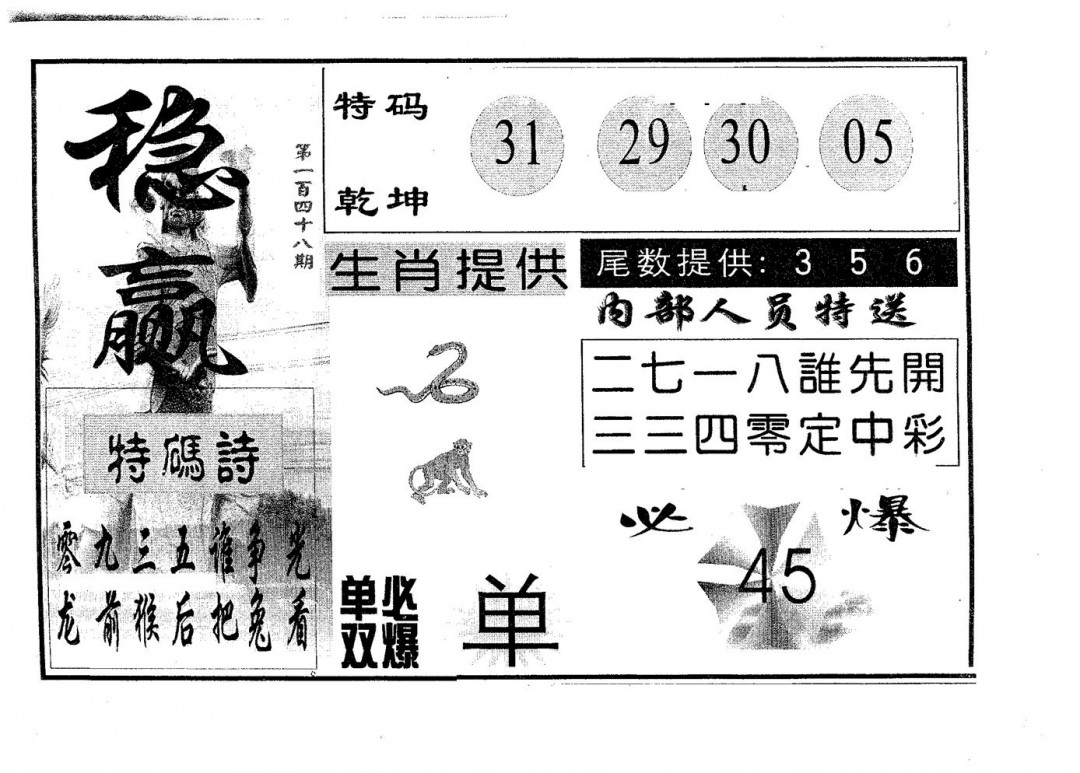 稳赢
第一百四十八期
特码
乾坤
31 29 30 05
生肖提供
尾数提供: 3 5 6
内部人员特送
二七一八誰先開
三三四零定中彩
特碼詩
零九三五谁争光
龙前猴后把兔看
必爆
45
单双
必爆
单